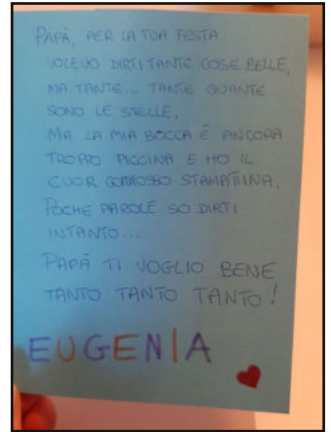 PAPÀ, PER LA TUA FESTA
VOLEVO DIRTI TANTE COSE BELLE,
MA TANTE... TANTE QUANTE
SONO LE STELLE.
MA LA MIA BOCCA È ANCORA
TROPPO PICCINA E HO IL
CUOR COMMOSSO STAMATTINA.
POCHE PAROLE SO DIRTI
INTANTO...
PAPÀ TI VOGLIO BENE
TANTO TANTO TANTO!
EUGENIA